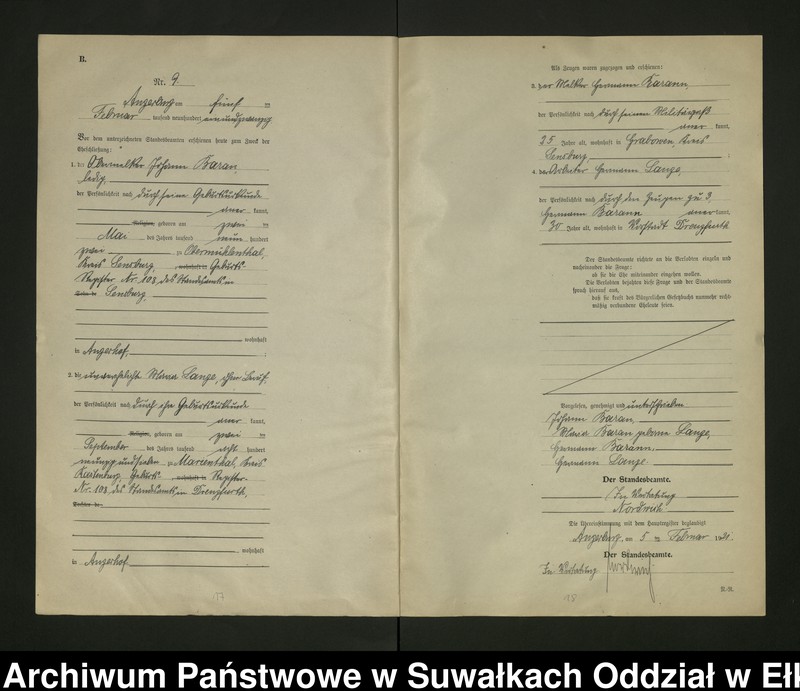 B.
Nr. 9
Angerburg am fünf ten
Februar tausend neunhundert einundzwanzig
Vor dem unterzeichneten Standesbeamten erschienen heute zum Zweck der
Eheschließung:
1. der Obermelker Johann Baran,
ledig,
der Persönlichkeit nach durch seine Geburtsurkunde
aner kannt,
Religion, geboren am zwei ten
Mai des Jahres tausend neun hundert
zwei zu Obermühlenthal,
Kreis Sensburg, wohnhaft in Geburts-
Register Nr. 103 des Standesamts in
Sensburg,
wohnhaft
in Angerhof,
2. die unverehelichte Maria Lange, ohne Beruf,
der Persönlichkeit nach durch ihre Geburtsurkunde
aner kannt,
Religion, geboren am zwei ten
September des Jahres tausend acht hundert
neunundneunzig zu Marienthal, Kreis
Rastenburg, Geburts- wohnhaft in Register
Nr. 103 des Standesamts in Drengfurth,
wohnhaft
in Angerhof.
17
Als Zeugen waren zugezogen und erschienen:
3. der Melker Hermann Barann,
der Persönlichkeit nach durch seinen Militärpaß
aner kannt,
35 Jahre alt, wohnhaft in Grabowen, Kreis
Sensburg;
4. der Arbeiter Hermann Lange,
der Persönlichkeit nach durch den Zeugen zu 3,
Hermann Barann aner kannt,
30 Jahre alt, wohnhaft in Vorstadt Drengfurth
Der Standesbeamte richtete an die Verlobten einzeln und
nacheinander die Frage:
ob sie die Ehe miteinander eingehen wollen.
Die Verlobten bejahten diese Frage und der Standesbeamte
sprach hierauf aus,
daß sie kraft des Bürgerlichen Gesetzbuchs nunmehr recht-
mäßig verbundene Eheleute seien.
Vorgelesen, genehmigt und unterschrieben
Johann Baran,
Maria Baran geborene Lange,
Hermann Barann.
Hermann Lange.
Der Standesbeamte.
In Vertretung
Die Übereinstimmung mit dem Hauptregister beglaubigt
Angerburg, am 5 ten Februar 1921.
Der Standesbeamte.
In Vertretung
18
Archiwum Państwowe w Suwałkach Oddział w Ełk